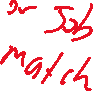 or Job
match